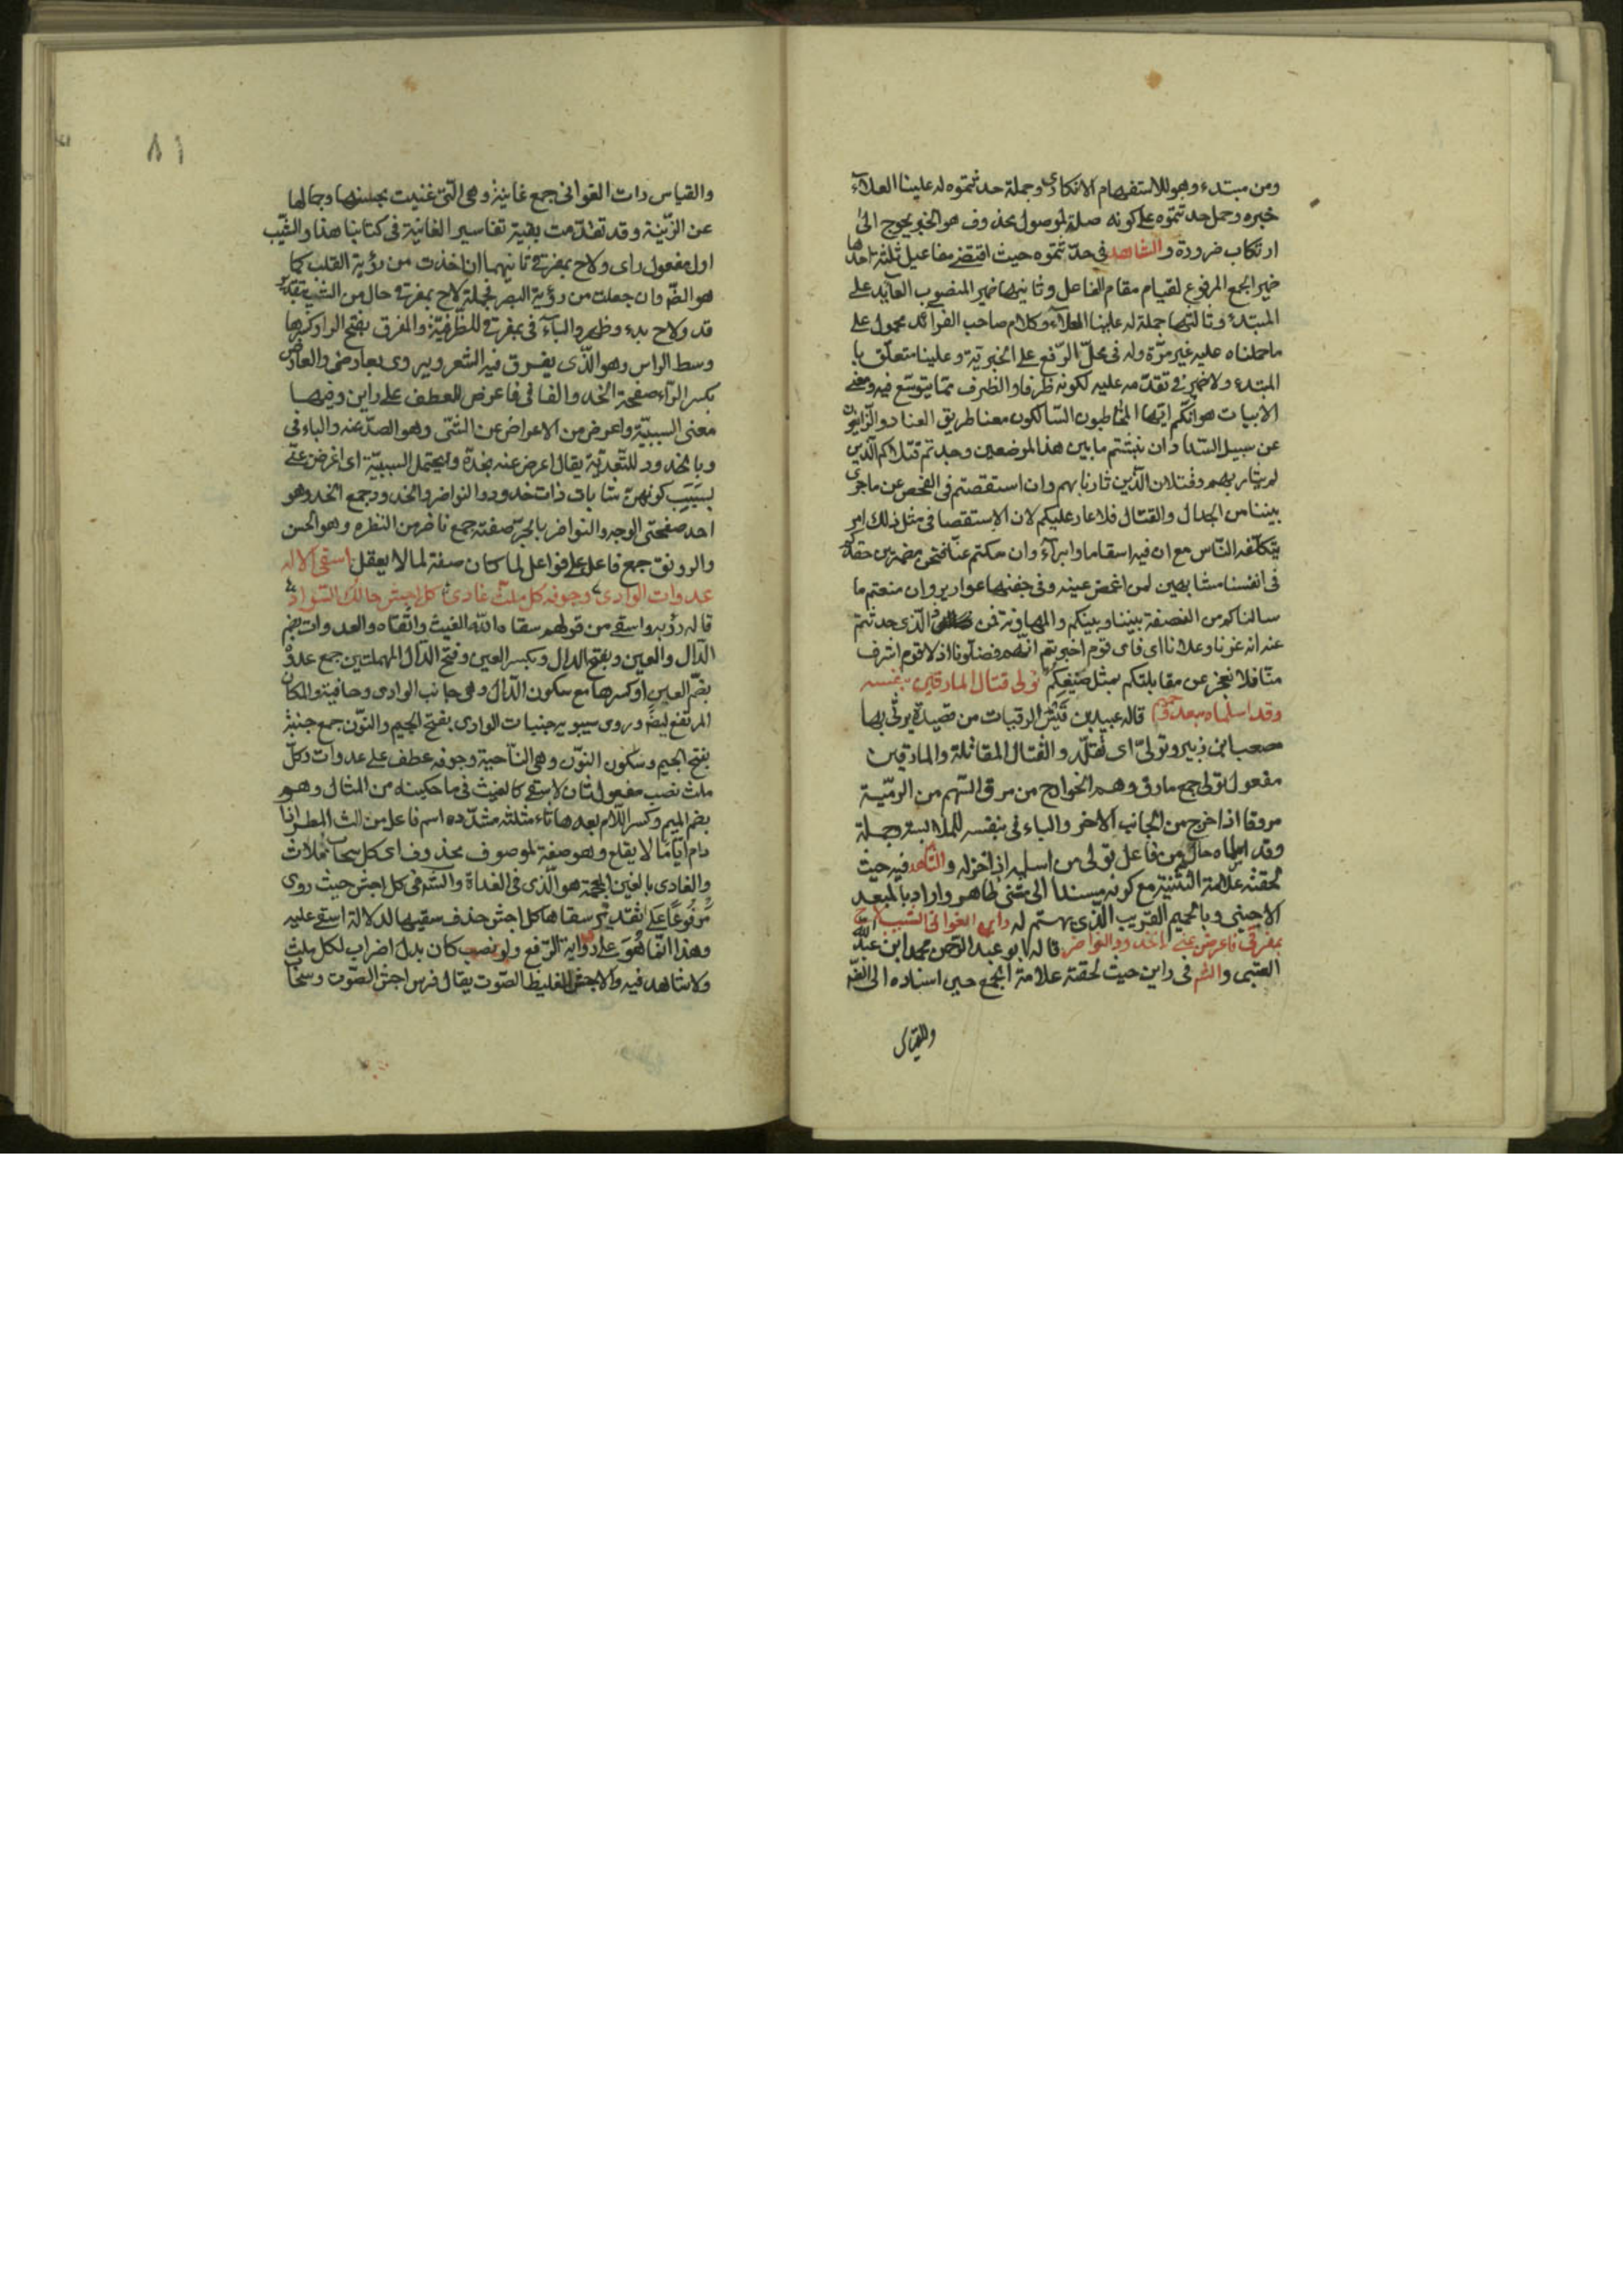 ومن مبتدء وهو للاستفهام الانكارى وجملة حدثتموه له علينا العلاء
خبره وحمل حدثتموه على كونه صلة لموصول محذوف هو الخبر يحوج الى
ارتكاب ضرورة والشاهد فى حدثتموه حيث اقتضى مفاعيل ثلثة احدها
ضمير الجمع المرفوع لقيام مقام الفاعل وثانيها ضمير المنصوب العايد على
المبتدء وثالثها جملة له علينا العلاء وكلام صاحب الفرائد محمول على
ما حملناه عليه غير مرة وله فى محل الرفع على الخبرية وعلينا متعلق با
المبتدء ولا ضير فى تقدمه عليه لكونه ظرفا والظرف مما يتوسع فيه ومعنى
الابيات هو انكم ايها المخاطبون السالكون معنا طريق العناد والزايغون
عن سبيل السداد ان نبشتم ما بين هذا الموضعين وجدتم قتلاكم الذين
لم يثار بهم وقتلانا الذين ثارنا بهم وان استقصتم فى الفحص عن ماجرى
بيننا من الجدال والقتال فلا عار عليكم لان الاستقصا فى مثل ذلك امر
يتكلفه الناس مع ان فيه اسقاما وابراء وان سكتم عنا فنحن مضمرين حقدكم
فى انفسنا مشابهين لمن اغمض عينه وفى جفنها عوار يروان منعتم ما
سالناكم من النصفة بيننا وبينكم والمهاونة فمن الذى حدثتم
عنه انه عزنا وعلانا اى فاى قوم اخبرتم انهم فضلونا اذ لا قوم اشرف
منا فلا نعجز عن مقابلتكم بمثل صنيعكم تولى قتال المارقين بنفسه
وقد اسلماه مبعد وحميم قاله عبيد بن قيس الرقيات من قصيدة يرثى بها
مصعب بن زبير وتولى اى تقلد والقتال المقاتلة والمارقين
مفعول تولى جمع مارق وهم الخوارج من مرق السهم من الرمية
مروقا اذا خرج من الجانب الاخر والباء فى بنفسه للملابسة وجملة
وقد اسلماه حال من فاعل تولى من اسلمه اذا خزله والشاهد فيه حيث
لحقته علامة التثنية مع كونه مسندا الى مثنى ظاهر واراد بالمبعد
الاجنبى وبالحميم القريب الذى يهتم له راين الغوانى الشيب لاح
بمفرقى فاعرضن عنى بالخدود النواضر قاله ابو عبد الرحمن محمد ابن عبد الله
العتبى والشم فى راين حيث لحقته علامة الجمع حين اسناده الى الظم
والقياس
٨١
والقياس رات الغوانى جمع غانية وهى التى غنيت بحسنها وجمالها
عن الزينة وقد تقدمت بقية تفاسير الغانية فى كتابنا هذا والشيب
اول مفعول راى ولاح بمفرقى ثانيهما ان اخذت من رؤية القلب كما
هو الظم وان جعلت من رؤية البصر فجملة لاح بمفرقى حال من الشيب بتقدير
قد ولاح بدء وظهر والباء فى بمفرقى للظرفية والمفرق بفتح الراء وكسرها
وسط الراس وهو الذى يفرق فيه الشعر ويروى بعارضى والعارض
بكسر الراء صفحة الخد والفا فى فاعرض للعطف على راين وفيها
معنى السببية واعرض من الاعراض عن الشئ وهو الصد عنه والباء فى
وبالخدود للتعدية يقال اعرض عنه بخده ويحتمل السببية اى اعرضن عنى
بسبب كونهن شابات ذات خدود والنواضر والخدود جمع الخد وهو
احد صفحتى الوجه والنواضر بالجر صفته جمع ناضر من النضره وهو الحسن
والرونق جمع فاعل على فواعل لما كان صفة لما لا يعقل اسقى الاله
عدوات الوادى وجوفه كل ملث غادى كل اجش حالك السواد
قاله رؤبه واسقى من قولهم سقاه الله الغيث واسقاه والعدوات بضم
الدال والعين وبفتح الدال وبكسر العين وفتح الدال المهملتين جمع عدوة
بضم العين او كسرها مع سكون الدال وهى جانب الوادى وحافيته والمكان
المرتفع ايضا وروى سيبويه جنبات الوادى بفتح الجيم والنون جمع جنبة
بفتح الجيم وسكون النون وهى الناحية وجوفه عطف على عدوات وكل
ملث نصب مفعول ثان لاسقى كالغيث فى ما حكيناه من المثال وهو
بضم الميم وكسر اللام بعدها ثاء مثلثة مشدده اسم فاعل من الث المطر اذا
دام اياما لا يقلع وهو صفة لموصوف محذوف اى كل سحاب ملاث
والغادى بالغين المعجمة هو الذى فى الغداة والشم فى كل اجش حيث روى
مرفوعا على تقدير سقاها كل اجش حذف سقيها لدلالة اسقى عليه
وهذا انما هو على رواية الرفع ولو نصب كان بدل اضراب لكل ملث
ولا شاهد فيه والاجش الغليظ الصوت يقال فرس اجش الصوت وسحاب